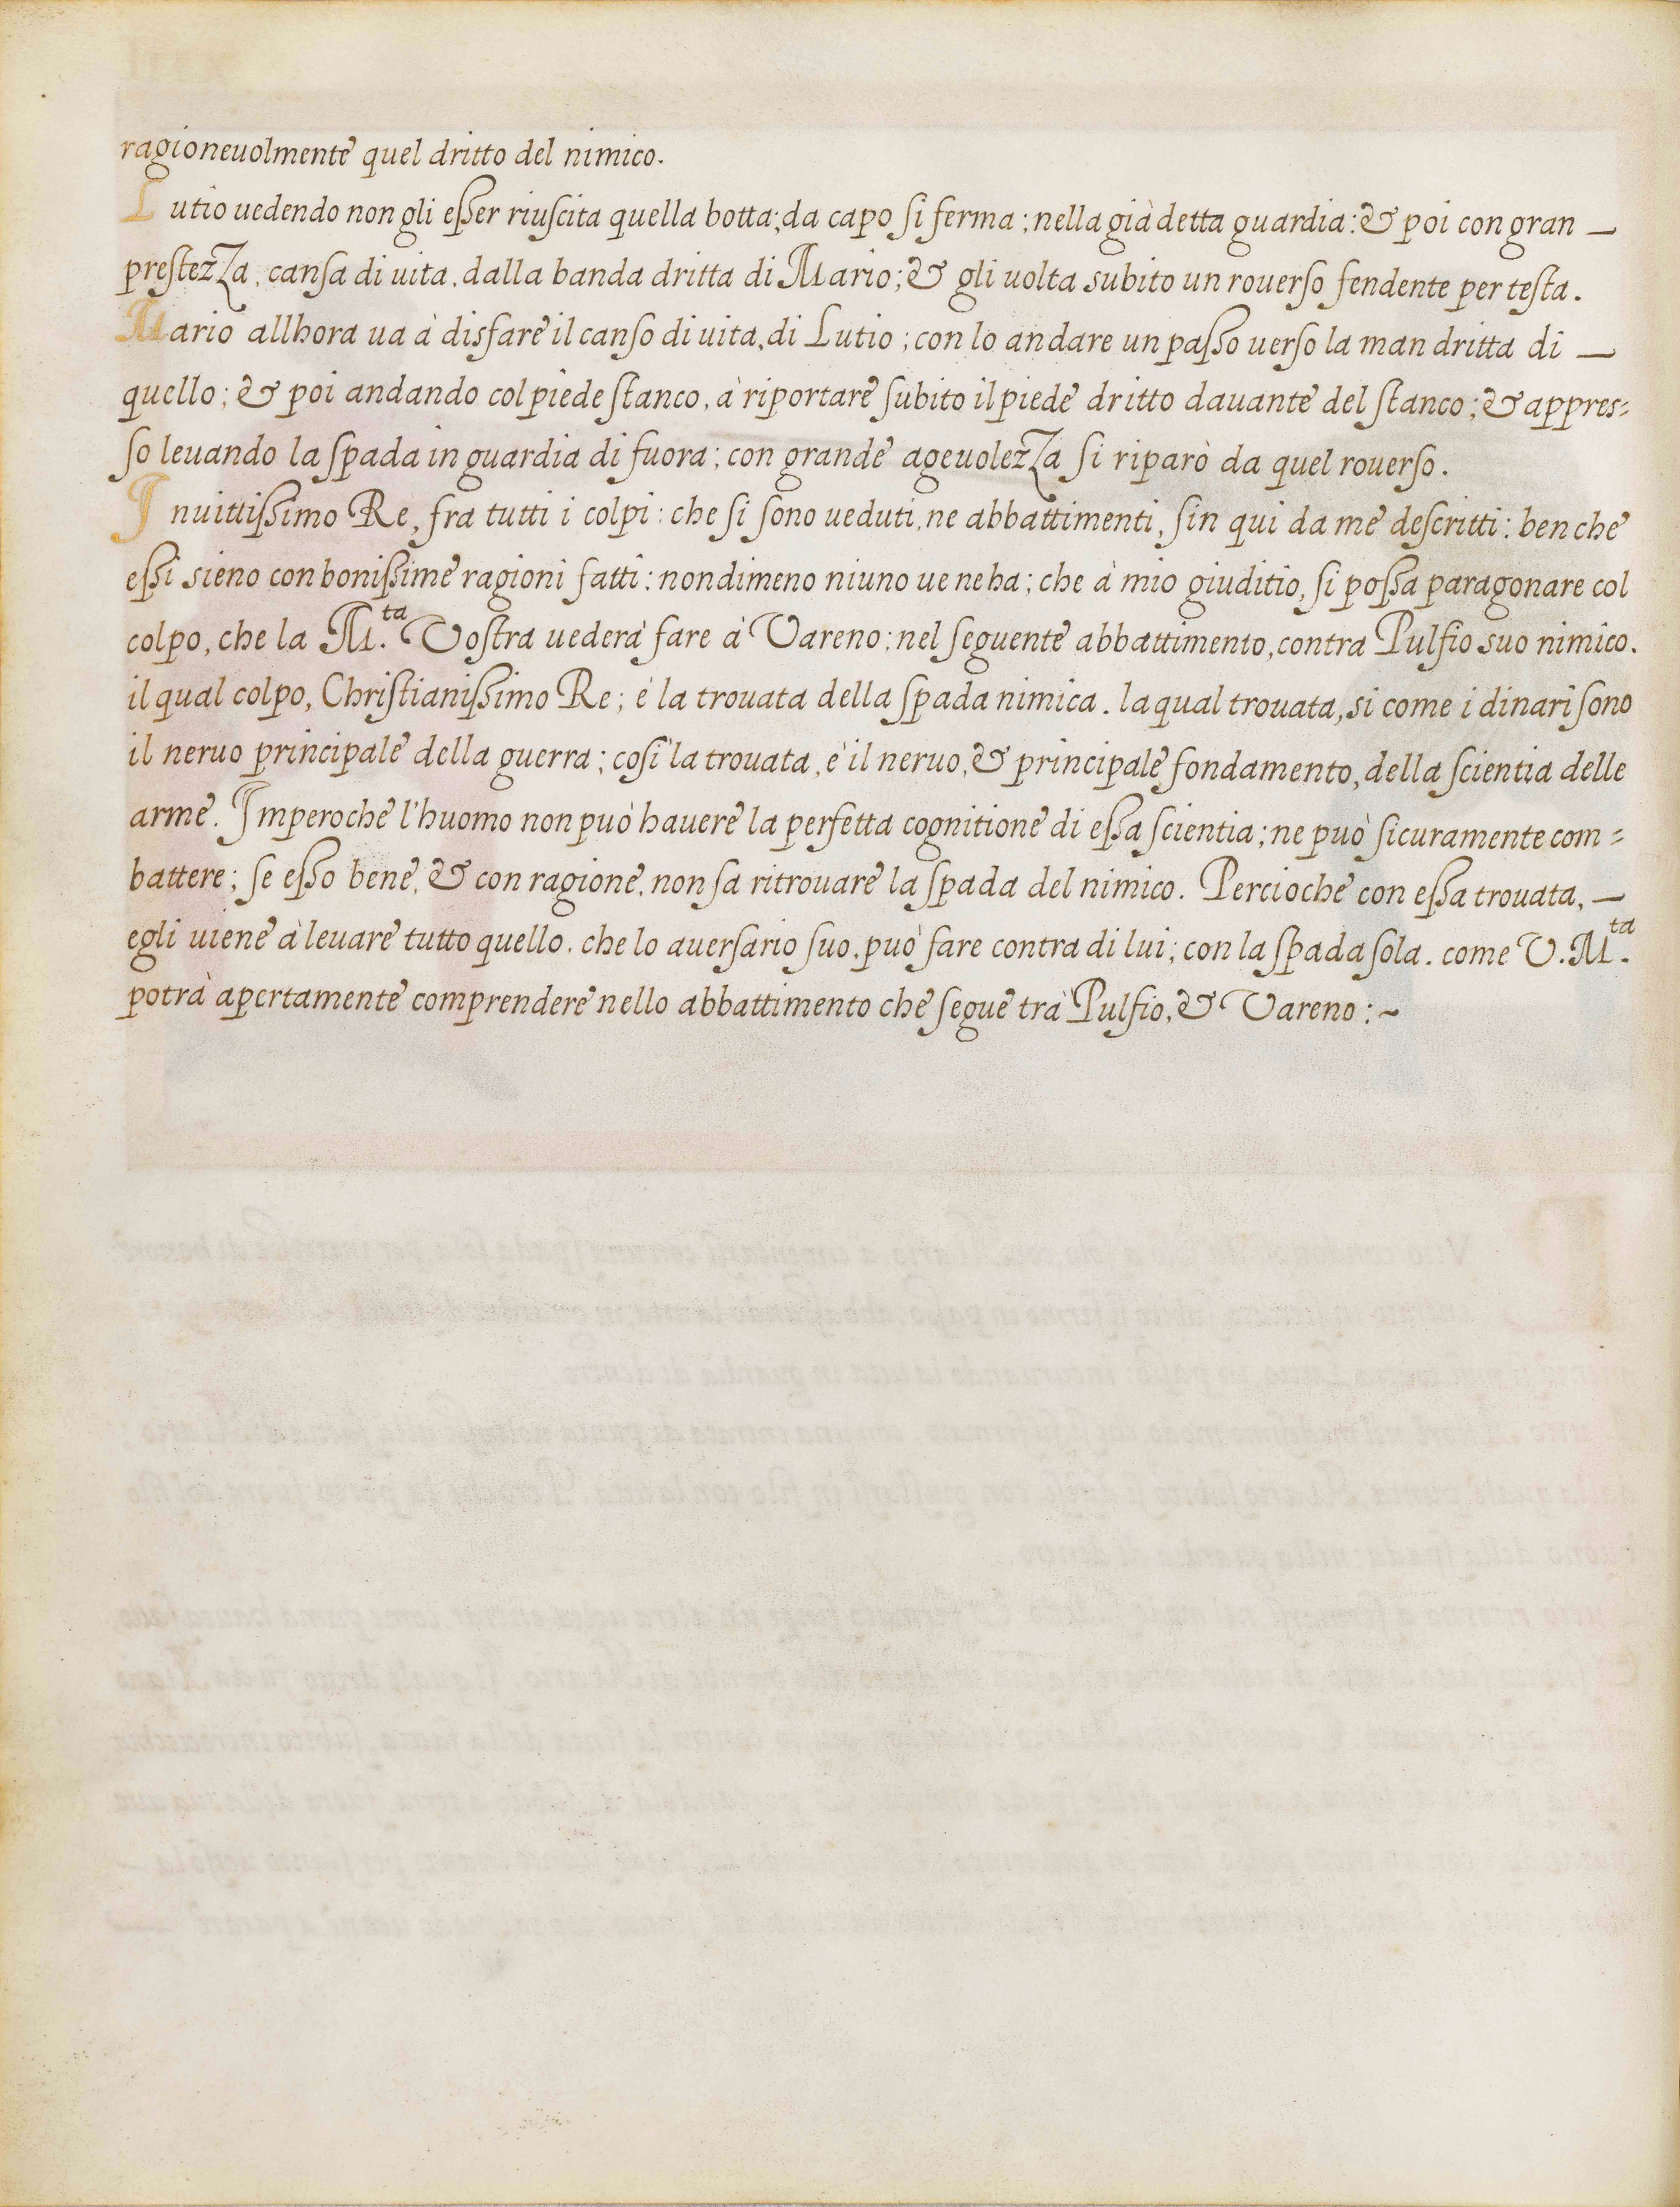 ragioneuolmente quel dritto del nimico.
Lutio uedendo non gli eſſer riuſcita quella botta; da capo ſi ferma; nella già detta guardia: & poi con gran —
preſtezza, canſa di uita, dalla banda dritta di Mario; & gli uolta subito un rouerſo fendente per teſta.
Mario allhora ua à disfare il canſo di uita, di Lutio; con lo andare un paſſo uerſo la man dritta di —
quello; & poi andando col piede ſtanco, à riportare ſubito il piede dritto dauante del ſtanco; & appres=
ſo leuando la ſpada in guardia di fuora; con grande ageuolezza ſi riparò da quel rouerſo.
Inuittiſſimo Re, fra tutti i colpi: che ſi ſono ueduti, ne abbattimenti, ſin qui da me deſcritti: ben che
eſſi sieno con boniſſime ragioni fatti: nondimeno niuno ue ne ha; che à mio giuditio, ſi poſſa paragonare col
colpo, che la M.ta Voſtra uederà fare à Vareno; nel ſeguente abbattimento, contra Pulfio suo nimico.
il qual colpo, Chriſtianiſſimo Re; è la trouata della ſpada nimica. la qual trouata, si come i dinari ſono
il neruo principale della guerra; coſi la trouata, è il neruo, & principale fondamento, della ſcientia delle
arme. Imperoche l'huomo non può hauere la perfetta cognitione di eſſa ſcientia; ne può ſicuramente com=
battere; ſe eſſo bene, & con ragione, non ſa ritrouare la ſpada del nimico. Percioche con eſſa trouata, —
egli uiene à leuare tutto quello, che lo auerſario ſuo, può fare contra di lui; con la ſpada ſola. come V. M.ta
potrà apertamente comprendere nello abbattimento che ſegue trà Pulfio, & Vareno :~